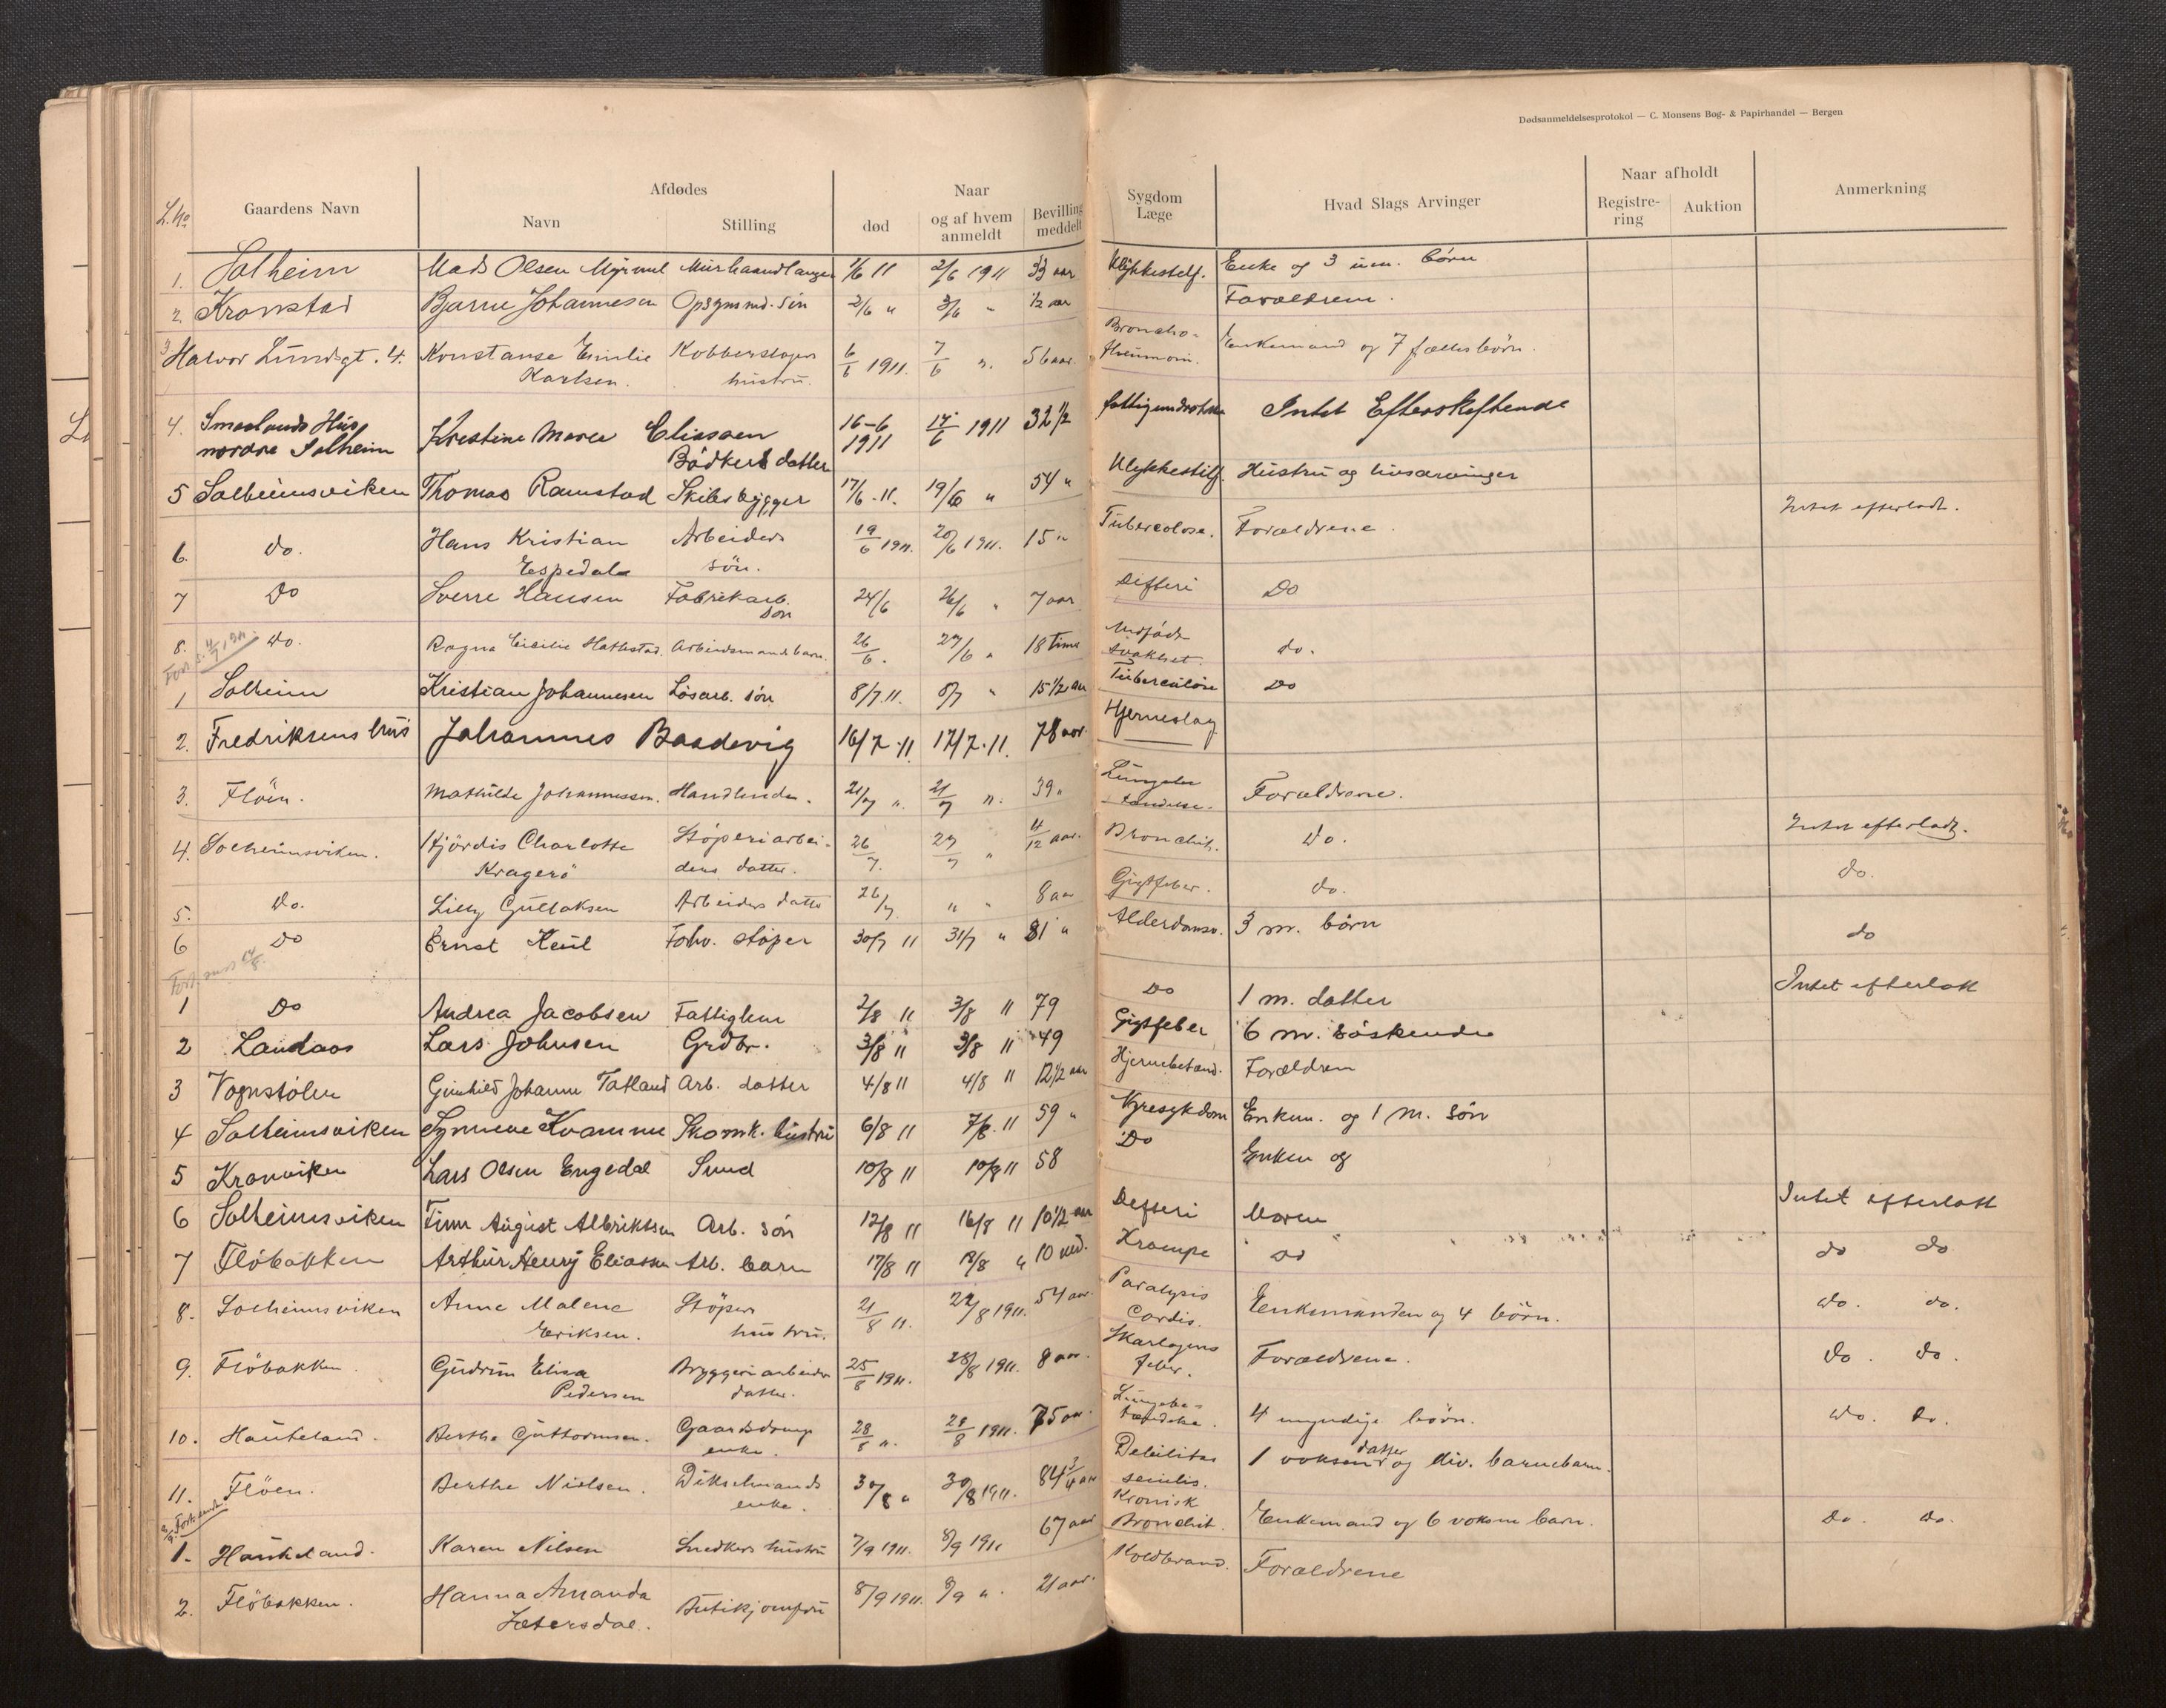 Dødsanmeldelsesprotokol — C. Monsens Bog- & Papirhandel — Bergen
L. No Gaardens Navn Afdødes Navn Stilling Naar død og af hvem anmeldt Bevilling meddelt Sygdom Læge Hvad Slags Arvinger Naar afholdt Registre-ring Auktion Anmerkning
1. Solheim Mads Olsen Myrmel Murhaandlanger 1/6 11 2/6 1911 33 aar Ulykkestilf. Enke og 3 um. børn
2. Kronstad Bjarne Johannesen Opsynsmd. søn 2/6 " 3/6 " 1/2 aar Forældrene.
3 Halvor Lundsgt. 4. Konstanse Emilie Kobberslagers 6/6 1911. 7/6 ". 56 aar. Broncho- Enkemand og 7 fælles børn.
Karlsen. hustru.
4. Smaalands Hus Kristine Maree Eliassen 16-6 17/6 1911 32 1/2 Intet Efterskeftende
nordre Solheim Bødkers datter 1911
5 Solheimsviken Thomas Ramstad Skibsbygger 17/6-11. 19/6 " 54 " Ulykkestilf. Hustru og livsarvinger
6. do. Hans Kristian Arbeiders 19/6 1911. 20/6 1911. 15 " Tuberculose. Forældrene. Intet efterladt.
Espedal søn.
7 Do Sverre Hansen Fabrikarb. 24/6 26/6 " 7 aar Difteri Do
søn
8. do. Ragna Cicilie Hatlestad. Arbeidsmands barn. 26/6. 27/6 " 18 time Medfødt do.
svakhet.
1 Solheim Kristian Johannesen Løsarb. søn 8/7 11. 8/7 " 15 1/2 aar Tuberculose Do
2. Fredriksens hus Johannes Baadevig 16/7.11. 17/7.11. 78 aar. Hjerneslag
3. Fløen. Mathilde Johannessen. Handlende. 21/7 ". 21/7 ". 39 " Lungebe- Forældrene.
tændelse.
4. Solheimsviken. Hjørdis Charlotte Støperiarbei- 26/7. 27/7 " 4/12 aar. Bronchit. do. Intet efterladt.
Kragerö ders datter.
5. do. Lilly Gullaksen Arbeiders datter 26/7 " " 8 aar Gigtfeber. do. do.
6 Do Ernst Keül Forhv. støper 30/7 11 31/7 " 81 " Alderdomsv. 3 m. børn do
1 Do Andrea Jacobsen Fattiglem 2/8 11 3/8 11 79 Do 1 m. datter Intet efterlatt
2 Landaas Lars Johnsen Grdbr. 3/8 11 3/8 11 49 Gigtfeber 6 m. søskende
3 Vognstølen Gunhild Johanne Tatland Arb. datter 4/8 11 4/8 11 12 1/2 aar Hjernebetænd. Forældren
4 Solheimsviken Synneve Kvamme Skomk. hustru 6/8 11 7/8.11 59 " Nyresykdom Enkem. og 1 m. søn
5 Kronviken Lars Olsen Engedal Smed 10/8 11 10/8 11 58 Do Enken og
6 Solheimsviken Finn August Albriktsen Arb. søn 12/8 11 16/8 11 10 1/2 aar Defteri Moren Intet efterlatt
7 Fløbakken Arthur Henry Eliassen Arb. barn 17/8 11 18/8 " 10 md. Krampe do do do
8. Solheimsviken Anne Malene Støpers 21/8 11. 22/8 1911. 54 aar. Paralysis Enkemanden og 4 børn. do. do.
Eriksen. hustru. Cordis.
9. Fløbakken. Gudrun Elisa Bryggeriarbeiders 25/8 1911. 28/8 1911. 8 aar. Skarlagens Forældrene. do. do.
Pedersen datter. feber.
10. Haukeland. Berthe Guttormsen. Gaardsdrengs 28/8 ". 28/8 1911. 75 aar. Lungebe- 4 myndige børn. do. do.
enke. tændelse.
11. Fløen. Berthe Nielsen. Vekselmands 30/8 " 30/8 1911. 84 3/4 aar Debilitas 1 voksen datter og div. barnebarn.
enke. senilis.
1. Haukeland. Karen Nilsen Snedkers hustru 7/9 1911. 8/9 1911 67 aar Kronisk Bronchit. Enkemand og 6 voksne barn. do. do.
2. Fløbakken. Hanna Amanda Butikjomfru 8/9 1911. 9/9 ". 21 aar. Koldbrand. Forældrene
Sætersdal.